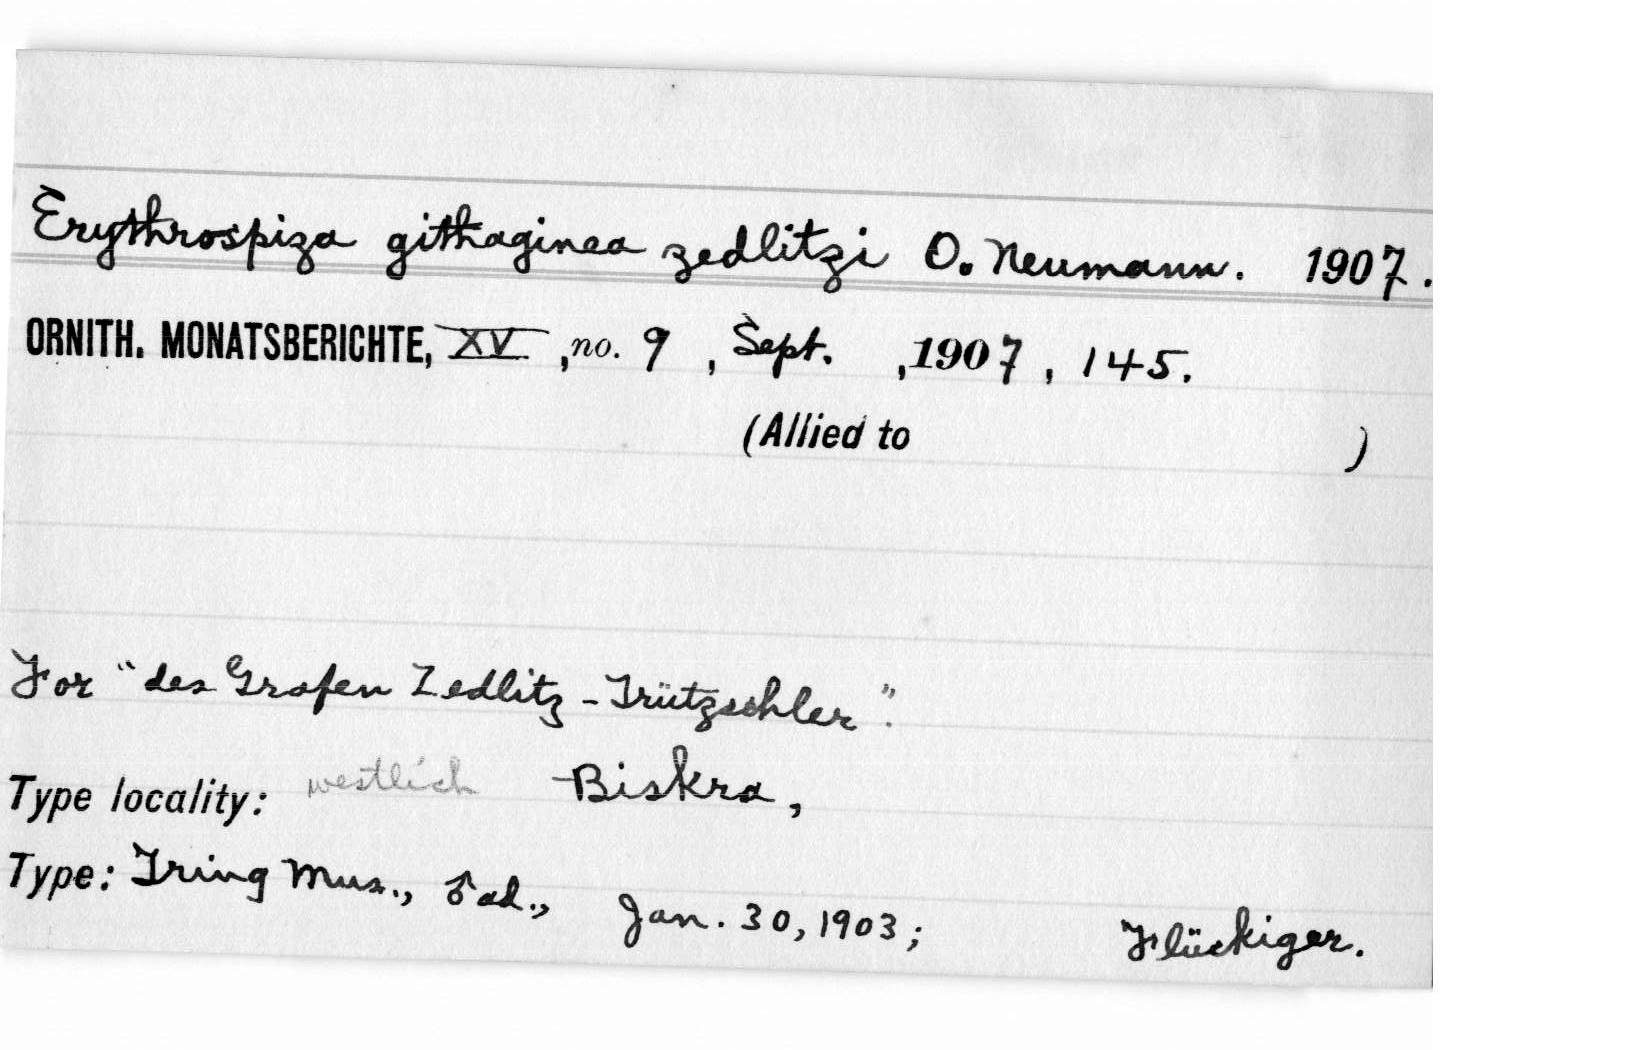 Erythrospiza githaginea zedlitzi O. Neumann. 1907.
ORNITH. MONATSBERICHTE, XV, no. 9, Sept., 1907, 145.
(Allied to )
For "des Grafen Zedlitz-Trützschler".
Type locality: westlich Biskra,
Type: Tring Mus., ♂ ad., Jan. 30, 1903; Flückiger.